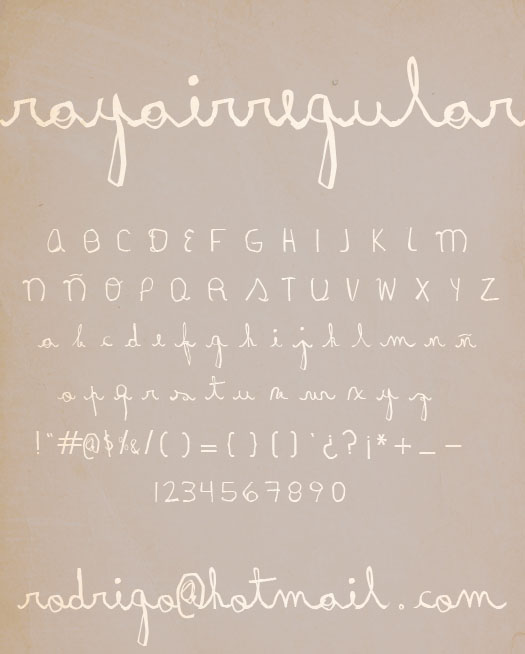 rayairregular
A B C D E F G H I J K L M
N Ñ O P Q R S T U V W X Y Z
a b c d e f g h i j k l m n ñ
o p q r s t u v w x y z
! " # @ $ % & / ( ) = { } [ ] ` ¿ ? ¡ * + _ -
1 2 3 4 5 6 7 8 9 0
rodrigo@hotmail.com